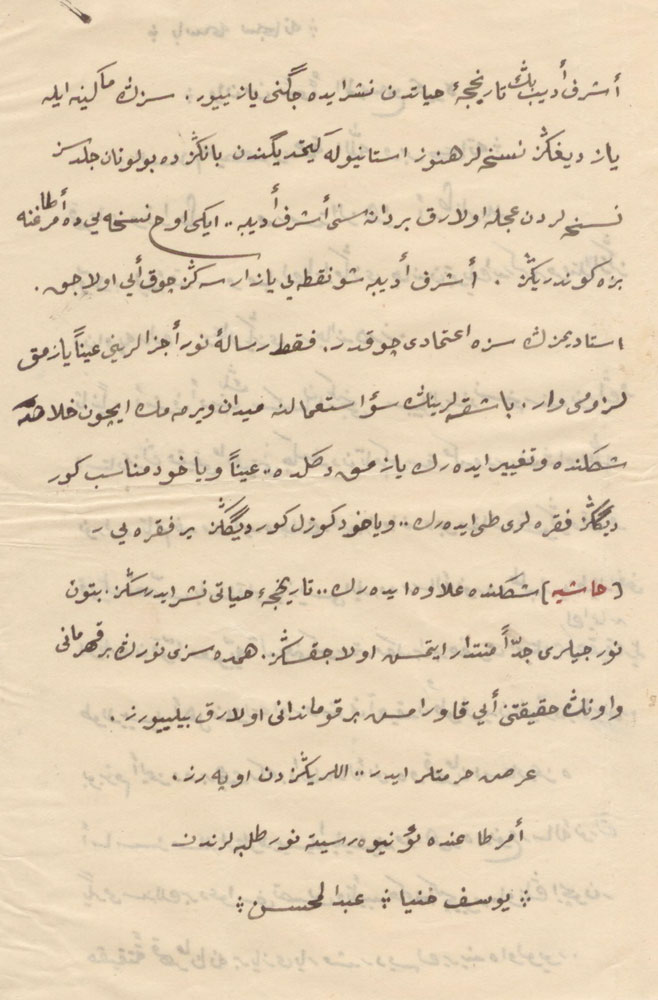 أشرف أديب بڭ تاريخچهٔ حياتدن نشر ايده جگنى يازييور. سزڭ ماكينه ايله
يازديغڭز نسخه لر هنوز استانبوله گيتمديگندن يانڭزده بولونان جلدسز
نسخه لردن عجله اولارق بر دانه سنى أشرف أديبه.. ايكى اوچ نسخه يى ده أمرطاغنه
بزه گوندريڭز. أشرف أديبه شو نقطه يى يازارسه ڭز چوق أيى اولاجق.
استاديمزڭ سزه اعتمادى چوقدر. فقط رسالهٔ نور أجزالرينى عيناً يازمق
لزومى وار. باشقه لرينڭ سؤ استعمالنه ميدان ويرمه مك ايچون خلاصه
شكلنده و تغيير ايده رك يازمق دگلده.. عيناً و ياخود مناسب گور
ديگڭز فقره لرى طى ايده رك.. و ياخود گوزل گورديگڭز بر فقره يى
[حاشيه] شكلنده علاوه ايده رك.. تاريخچهٔ حياتى نشر ايدرسڭز. بتون
نورجيلرى جدّاً منتدار ايتمش اولاجقسڭز. همده سزى نورڭ بر قهرمانى
و اونڭ حقيقتنى أيى قاورامش بر قوماندانى اولارق بيلييورز.
عرض حرمتلر ايدر.. اللريڭزدن اوپه رز.
أمرطاغنده اونيورسيته نور طلبه لرندن
يوسف ضيا عبدالمحسن